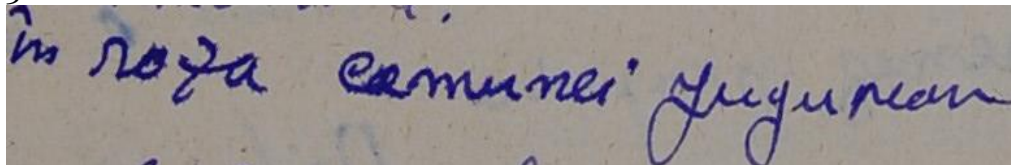 în roza comunei Jugureanu